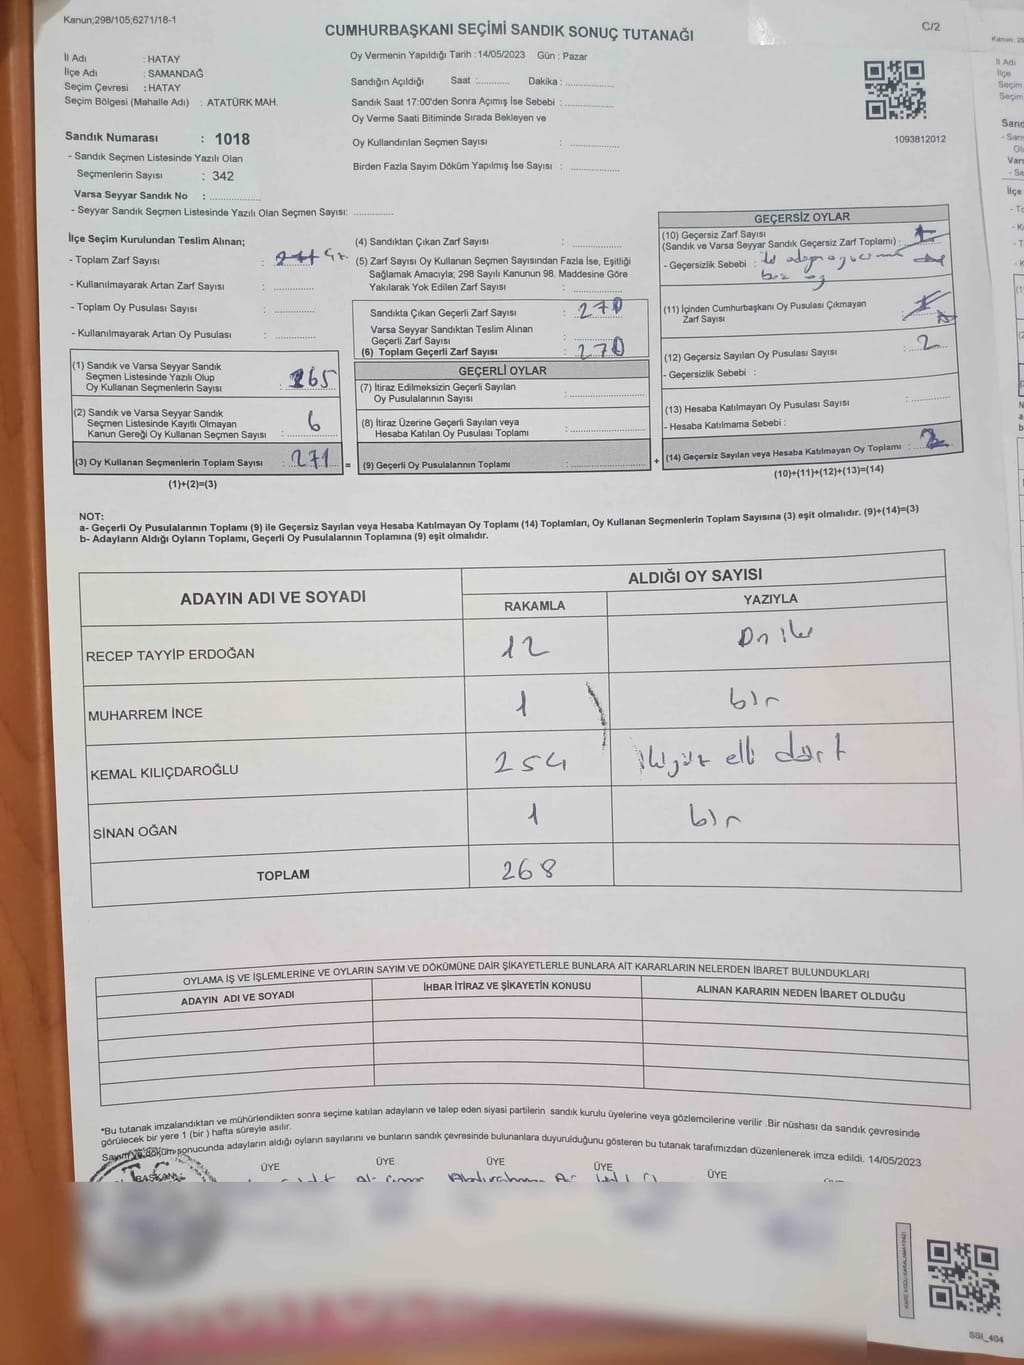 Kanun;298/105;6271/18-1
CUMHURBAŞKANI SEÇİMİ SANDIK SONUÇ TUTANAĞI
C/2
İl Adı : HATAY
İlçe Adı : SAMANDAĞ
Seçim Çevresi : HATAY
Seçim Bölgesi (Mahalle Adı) : ATATÜRK MAH.
Oy Vermenin Yapıldığı Tarih : 14/05/2023 Gün : Pazar
Sandığın Açıldığı Saat :........... Dakika :................
Sandık Saat 17:00'den Sonra Açımış İse Sebebi :................
Oy Verme Saati Bitiminde Sırada Bekleyen ve
Oy Kullandırılan Seçmen Sayısı :................
Birden Fazla Sayım Döküm Yapılmış İse Sayısı :................
1093812012
Sandık Numarası : 1018
- Sandık Seçmen Listesinde Yazılı Olan
Seçmenlerin Sayısı : 342
Varsa Seyyar Sandık No :................
- Seyyar Sandık Seçmen Listesinde Yazılı Olan Seçmen Sayısı: ............
İlçe Seçim Kurulundan Teslim Alınan;
- Toplam Zarf Sayısı :
- Kullanılmayarak Artan Zarf Sayısı :............
- Toplam Oy Pusulası Sayısı :............
- Kullanılmayarak Artan Oy Pusulası :............
(1) Sandık ve Varsa Seyyar Sandık
Seçmen Listesinde Yazılı Olup
Oy Kullanan Seçmenlerin Sayısı : 265
(2) Sandık ve Varsa Seyyar Sandık
Seçmen Listesinde Kayıtlı Olmayan
Kanun Gereği Oy Kullanan Seçmen Sayısı : 6
(3) Oy Kullanan Seçmenlerin Toplam Sayısı : 271
(1)+(2)=(3)
(4) Sandıktan Çıkan Zarf Sayısı :............
(5) Zarf Sayısı Oy Kullanan Seçmen Sayısından Fazla İse, Eşitliği
Sağlamak Amacıyla; 298 Sayılı Kanunun 98. Maddesine Göre
Yakılarak Yok Edilen Zarf Sayısı :............
Sandıkta Çıkan Geçerli Zarf Sayısı : 270
Varsa Seyyar Sandıktan Teslim Alınan
Geçerli Zarf Sayısı :............
(6) Toplam Geçerli Zarf Sayısı : 270
GEÇERLİ OYLAR
(7) İtiraz Edilmeksizin Geçerli Sayılan
Oy Pusulalarının Sayısı :............
(8) İtiraz Üzerine Geçerli Sayılan veya
Hesaba Katılan Oy Pusulası Toplamı :............
= (9) Geçerli Oy Pusulalarının Toplamı :............ +
GEÇERSİZ OYLAR
(10) Geçersiz Zarf Sayısı
(Sandık ve Varsa Seyyar Sandık Geçersiz Zarf Toplamı) :
- Geçersizlik Sebebi :
(11) İçinden Cumhurbaşkanı Oy Pusulası Çıkmayan
Zarf Sayısı :
(12) Geçersiz Sayılan Oy Pusulası Sayısı : 2
- Geçersizlik Sebebi :
(13) Hesaba Katılmayan Oy Pusulası Sayısı :............
- Hesaba Katılmama Sebebi :
(14) Geçersiz Sayılan veya Hesaba Katılmayan Oy Toplamı :
(10)+(11)+(12)+(13)=(14)
NOT:
a- Geçerli Oy Pusulalarının Toplamı (9) ile Geçersiz Sayılan veya Hesaba Katılmayan Oy Toplamı (14) Toplamları, Oy Kullanan Seçmenlerin Toplam Sayısına (3) eşit olmalıdır. (9)+(14)=(3)
b- Adayların Aldığı Oyların Toplamı, Geçerli Oy Pusulalarının Toplamına (9) eşit olmalıdır.
ADAYIN ADI VE SOYADI
ALDIĞI OY SAYISI
RAKAMLA YAZIYLA
RECEP TAYYİP ERDOĞAN 12 On iki
MUHARREM İNCE 1 bir
KEMAL KILIÇDAROĞLU 254 ikiyüz elli dört
SİNAN OĞAN 1 bir
TOPLAM 268
OYLAMA İŞ VE İŞLEMLERİNE VE OYLARIN SAYIM VE DÖKÜMÜNE DAİR ŞİKAYETLERLE BUNLARA AİT KARARLARIN NELERDEN İBARET BULUNDUKLARI
ADAYIN ADI VE SOYADI İHBAR İTİRAZ VE ŞİKAYETİN KONUSU ALINAN KARARIN NEDEN İBARET OLDUĞU
*Bu tutanak imzalandıktan ve mühürlendikten sonra seçime katılan adayların ve talep eden siyasi partilerin sandık kurulu üyelerine veya gözlemcilerine verilir .Bir nüshası da sandık çevresinde
görülecek bir yere 1 (bir ) hafta süreyle asılır.
Sayım ve döküm sonucunda adayların aldığı oyların sayılarını ve bunların sandık çevresinde bulunanlara duyurulduğunu gösteren bu tutanak tarafımızdan düzenlenerek imza edildi. 14/05/2023
BAŞKAN ÜYE ÜYE ÜYE ÜYE ÜYE
SSİ_404